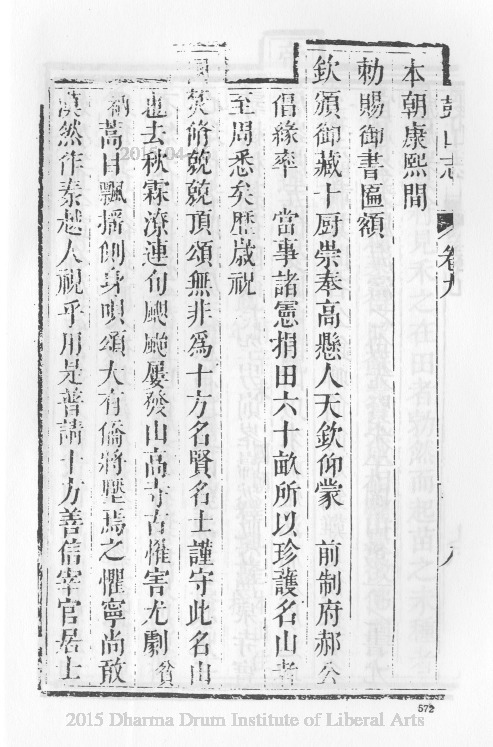 鼓山志 卷九 八
本朝康熙間
勅賜御書匾額
欽頒御藏十厨崇奉高懸人天欽仰蒙 前制府郝公
倡緣率 當事諸憲捐田六十畝所以珍護名山者
至周悉矣歷歲祝
國焚脩兢兢頂頌無非爲十方名賢名士謹守此名山
也去秋霖潦連旬颶颱屢發山高寺古惟害尤劇貧
衲蒿目飄搖側身唄頌大有僑將壓焉之懼寧尚敢
漠然作秦越人視乎用是普請十方善信宰官居士
572
2015 Dharma Drum Institute of Liberal Arts